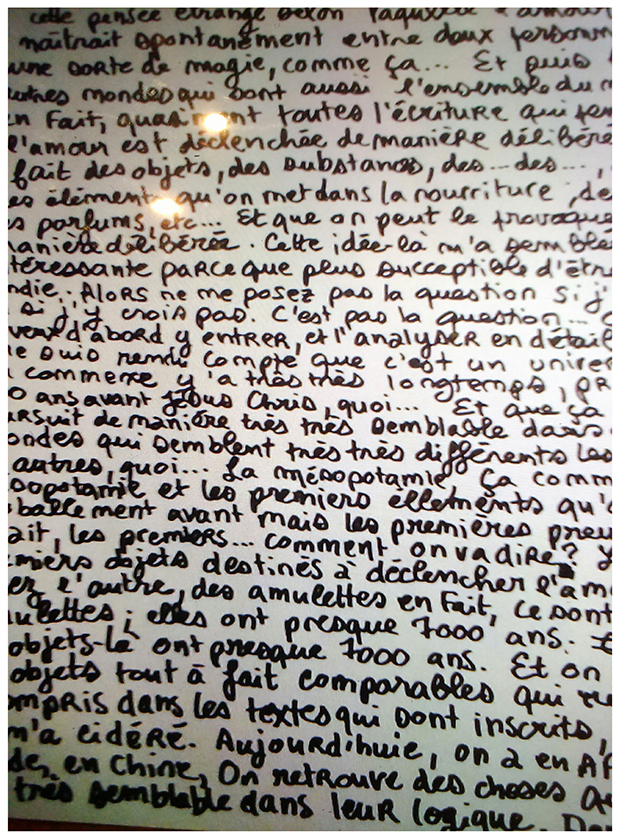 cette pensée étrange selon laquelle l'amour
naîtrait spontanément entre deux personn
une sorte de magie, comme ça... Et puis
autres mondes qui sont aussi l'ensemble du m
en Fait, quasiment toutes l'écriture qui
l'amour est déclenchée de manière délibéré
fait des objets, des substances, des... des...,
es éléments qu'on met dans la nourriture, de
s parfums, etc... Et que on peut le provoque
anière délibérée. Cette idée-là m'a semblé
téressante parce que plus succeptible d'êtr
ndie. Alors ne me posez pas la question si j'
si j'y crois pas. C'est pas la question...
veux d'abord y entrer, et l'analyser en détail
e suis rendu compte que c'est un univer
commence y'a très très longtemps, pr
0 ans avant Jésus Chris, quoi... Et que ça
ursuit de manière très très semblable dans
ondes qui semblent très très différents les
autres, quoi... La mésopotamie, ça comm
sopotamie et les premiers ellements qu'
ballement avant mais les premières preu
ait, les premiers... comment on va dire?
emiers objets destinés à déclencher l'am
ez l'autre, des amulettes en fait, ce sont
mulettes; elles ont presque 7000 ans.
objets-là ont presque 7000 ans. Et on
objets tout à fait comparables qui
ompris dans les textes qui sont inscrits,
m'a cidéré. Aujourd'huie, on a en AF
de, en Chine, On retrouve des choses
très semblable dans leur logique.